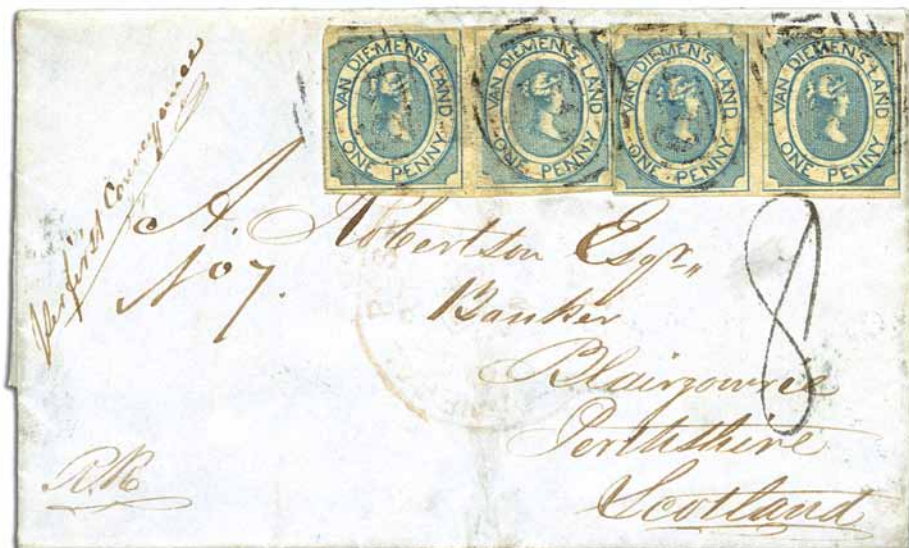 VAN DIEMEN'S LAND ONE PENNY
VAN DIEMEN'S LAND ONE PENNY
VAN DIEMEN'S LAND ONE PENNY
VAN DIEMEN'S LAND ONE PENNY
Per first Conveyance
A. Robertson Esqr,,
No 7.
Banker
Blairgowrie
Perthshire
Scotland
8
R.R